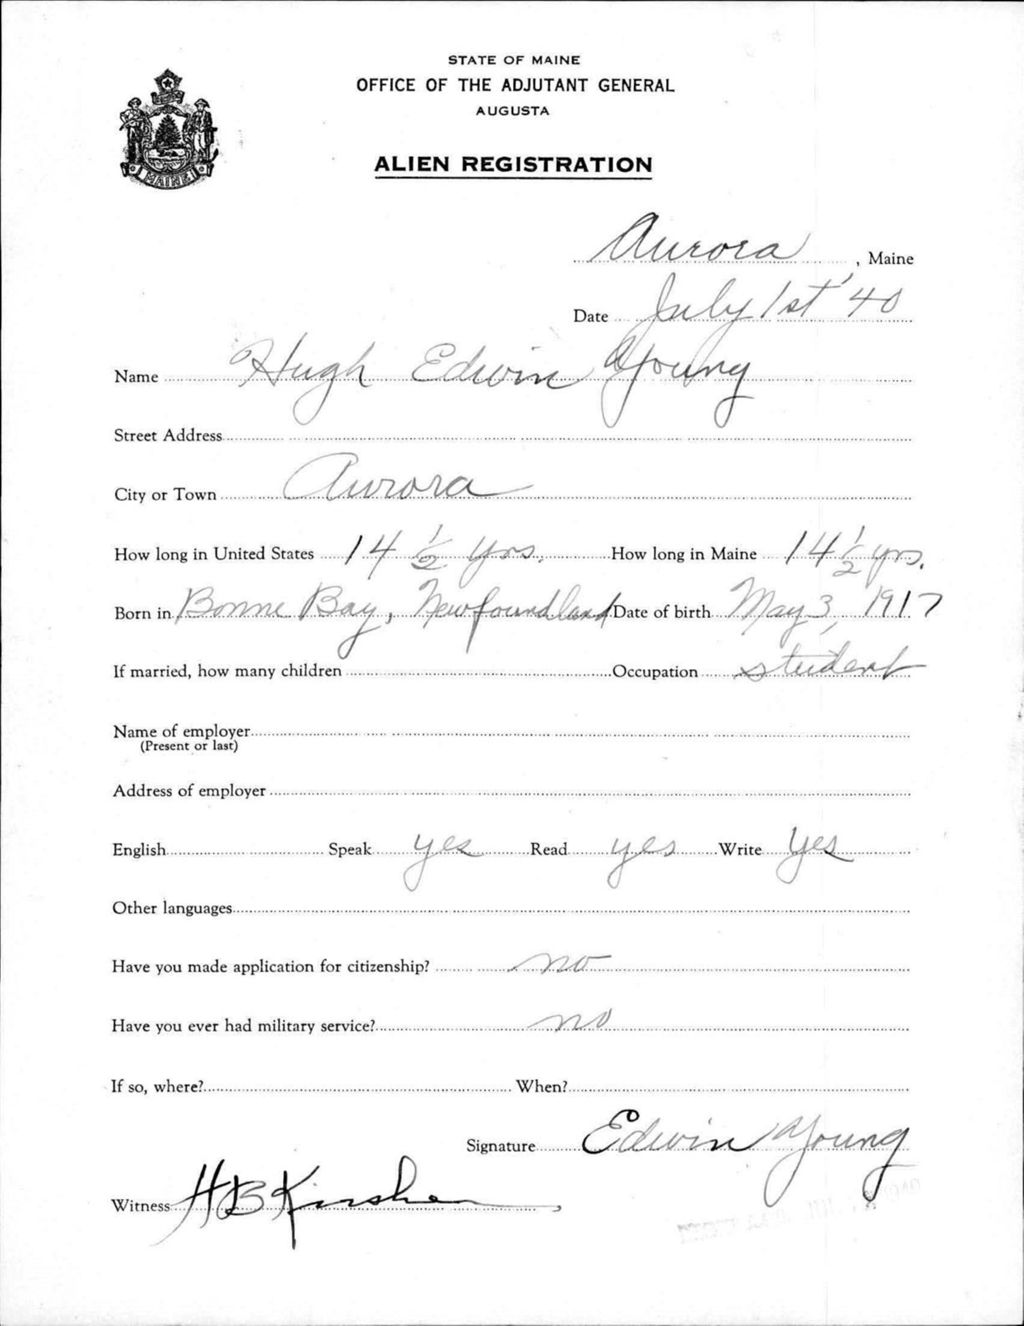 STATE OF MAINE
OFFICE OF THE ADJUTANT GENERAL
AUGUSTA
MAINE
ALIEN REGISTRATION
Aurora, Maine
Date July 1st '40
Name Hugh Edwin Young
Street Address
City or Town Aurora
How long in United States 14 1/2 yrs. How long in Maine 14 1/2 yrs.
Born in Bonne Bay, Newfoundland Date of birth May 3, 1917
If married, how many children Occupation student
Name of employer
(Present or last)
Address of employer
English Speak yes Read yes Write yes
Other languages
Have you made application for citizenship? no
Have you ever had military service? no
If so, where? When?
Signature Edwin Young
Witness H B